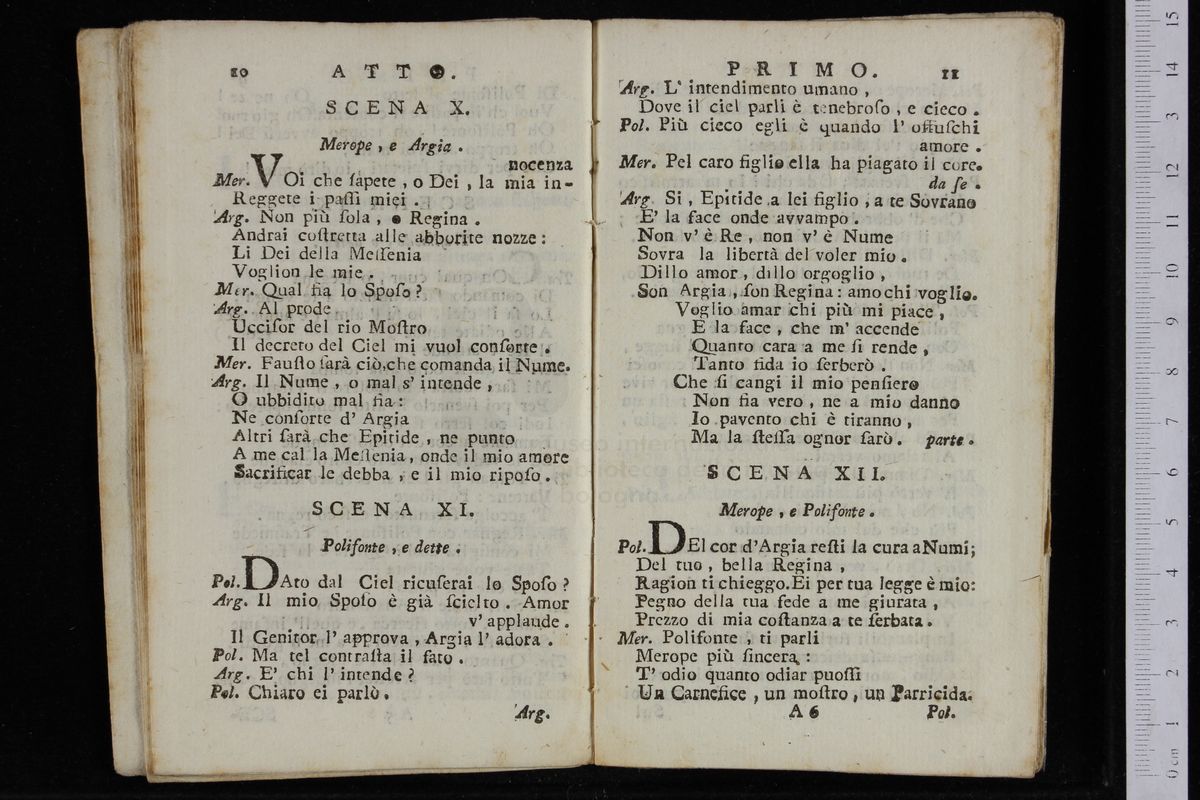 10 ATTO.
SCENA X.
Merope, e Argia.
nocenza
Mer. VOi che ſapete, o Dei, la mia in-
Reggete i paſſi miei.
Arg. Non più ſola, o Regina.
Andrai coſtretta alle abborite nozze:
Li Dei della Meſſenia
Voglion le mie.
Mer. Qual fia lo Spoſo?
Arg. Al prode
Ucciſor del rio Moſtro
Il decreto del Ciel mi vuol conſorte.
Mer. Fauſto ſarà ciò, che comanda il Nume.
Arg. Il Nume, o mal s' intende,
O ubbidito mal fia:
Ne conſorte d' Argia
Altri ſarà che Epitide, ne punto
A me cal la Meſſenia, onde il mio amore
Sacrificar le debba, e il mio ripoſo.
SCENA XI.
Polifonte, e dette.
Pol. DAto dal Ciel ricuſerai lo Spoſo?
Arg. Il mio Spoſo è già ſcielto. Amor
v' applaude.
Il Genitor l' approva, Argia l' adora.
Pol. Ma tel contraſta il fato.
Arg. E' chi l' intende?
Pol. Chiaro ei parlò.
Arg.
PRIMO. 11
Arg. L' intendimento umano,
Dove il ciel parli è tenebroſo, e cieco.
Pol. Più cieco egli è quando l' offuſchi
amore.
Mer. Pel caro figlio ella ha piagato il core.
da ſe.
Arg. Si, Epitide a lei figlio, a te Sovrano
E' la face onde avvampo.
Non v' è Re, non v' è Nume
Sovra la libertà del voler mio.
Dillo amor, dillo orgoglio,
Son Argia, ſon Regina: amo chi voglio.
Voglio amar chi più mi piace,
E la face, che m' accende
Quanto cara a me ſi rende,
Tanto fida io ſerberò.
Che ſi cangi il mio penſiero
Non fia vero, ne a mio danno
Io pavento chi è tiranno,
Ma la ſteſſa ognor ſarò. parte.
SCENA XII.
Merope, e Polifonte.
Pol. DEl cor d'Argia reſti la cura a Numi;
Del tuo, bella Regina,
Ragion ti chieggo. Ei per tua legge è mio:
Pegno della tua fede a me giurata,
Prezzo di mia coſtanza a te ſerbata.
Mer. Polifonte, ti parli
Merope più ſincera:
T' odio quanto odiar puoſſi
Un Carnefice, un moſtro, un Parricida.
A 6 Pol.